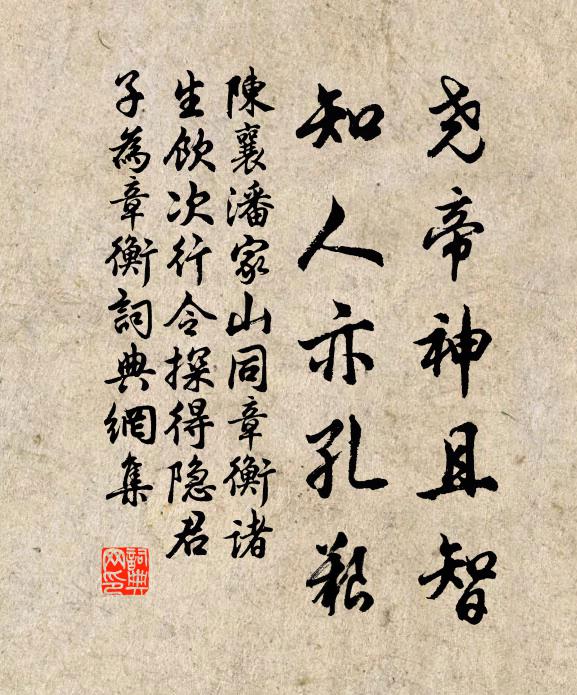 尧帝神且智
知人亦孔艱
陳襄潘家山同章衡諸
生飲次行令探得隐君
子為章衡詞典網集
詞典网印